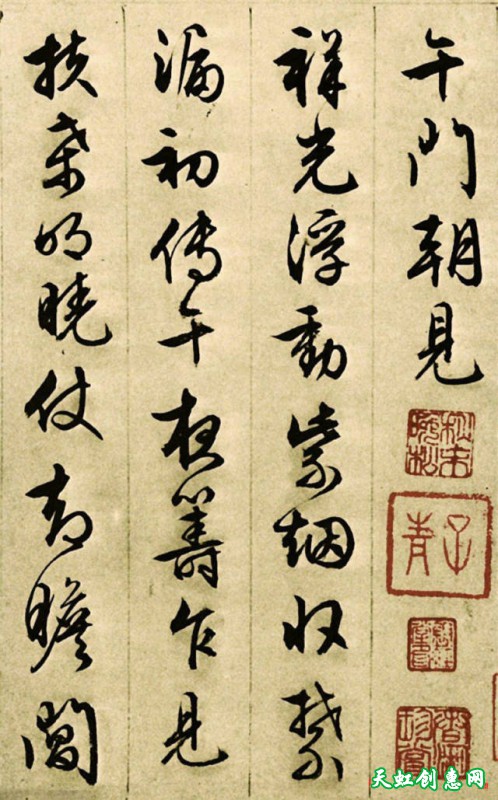 午門朝見
祥光浮動紫烟收禁
漏初傳午夜籌乍見
扶桑明曉仗却瞻閶
子青
天虹创惠网